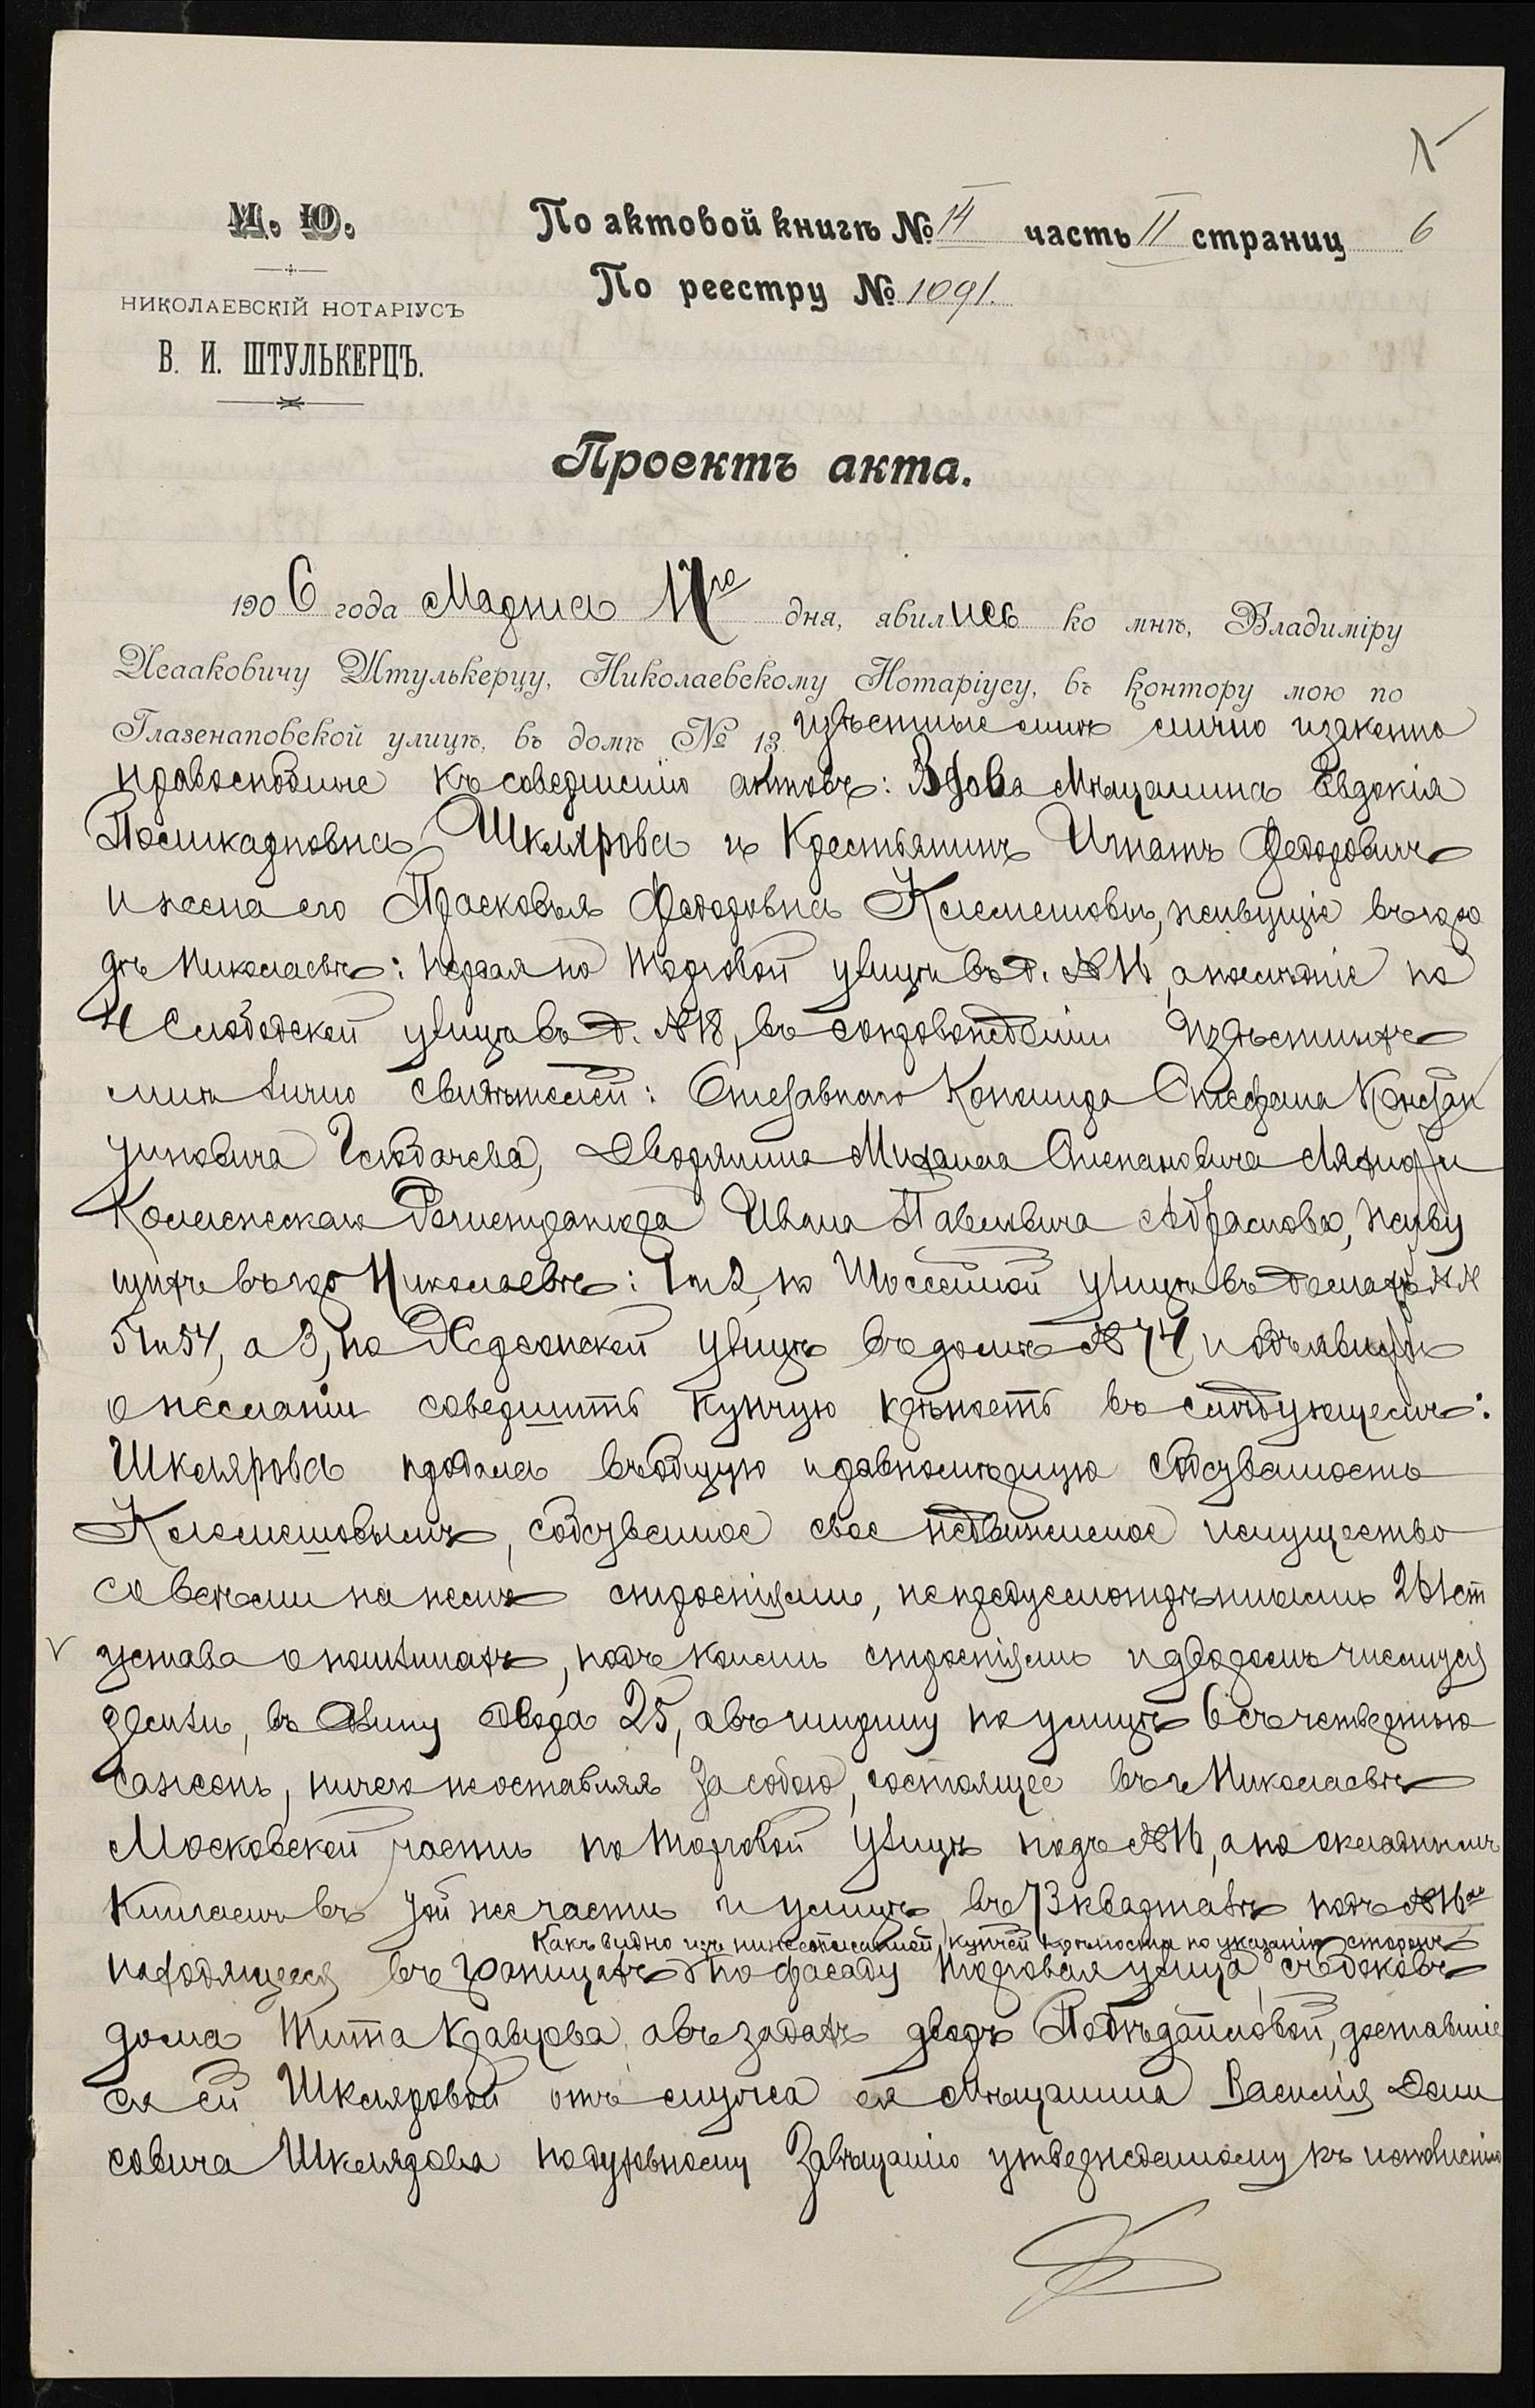 М. Ю.
НИКОЛАЕВСКІЙ НОТАРІУСЪ
В. И. ШТУЛЬКЕРЦЪ.
По актовой книгѣ № 14 часть II страниц 6
По реестру № 1091.
Проектъ акта.
1906 года Марта 17го дня, явились ко мнѣ, Владиміру
Исааковичу Штулькерцу, Николаевскому Нотаріусу, въ контору мою по
Глазенаповской улицѣ, въ домѣ № 13 извѣстные мнѣ лично и законно
правоспособные къ совершенію актовъ: Вдова Мѣщанина Евдокія
Поликарповна Шклярова и Крестьянинъ Игнатъ Федоровичъ
и жена его Прасковья Федоровна Клемешовы, живущіе въ горо
дѣ Николаевѣ: первая по Торговой улицѣ въ д. № 16, а послѣдніе по
4 Слободской улицѣ въ д. № 18, въ сопровожденіи извѣстныхъ
мнѣ лично свидѣтелей: Отставного Констан
тиновича Дворянина Михаила Степановича и
Коллежскаго Регистратора Ивана Павловича Абрамова, живу
щихъ въ гор Николаевѣ: 1 и 2, по Шоссейной улицѣ въ домахъ №№
51 и 54, а 3, по Херсонской улицѣ въ домѣ № 74 и объявили
о желаніи совершить купчую крѣпость въ слѣдующемъ:
Шклярова продала въ общую и равномѣрную собственность
Клемешовымъ, собственное свое недвижимое имущество
со всѣми на немъ строеніями, непредусмотрѣнными 261 ст
устава о пошлинахъ, подъ коимъ строеніемъ и дворомъ числится
земли, въ длину двора 25, а въ ширину по улицѣ 6 съ четвертью
сажень, ничего не оставляя за собою, состоящее въ г Николаевѣ
Московской части по Торговой улицѣ подъ № 16, а по окладнымъ
книгамъ въ той же части и улицѣ, въ 73 кварталѣ подъ № 16
Какъ видно изъ нижеописанной купчей крѣпости по указанію сторонъ
находящееся въ границахъ: по фасаду Торговая улица, съ боковъ
дома Тита Кравцова, а въ задахъ дворъ доставшіе
ся ей Шкляровой отъ мужа ея Мѣщанина Василія Дени
совича Шклярова по духовному завѣщанію утвержденному къ исполненію